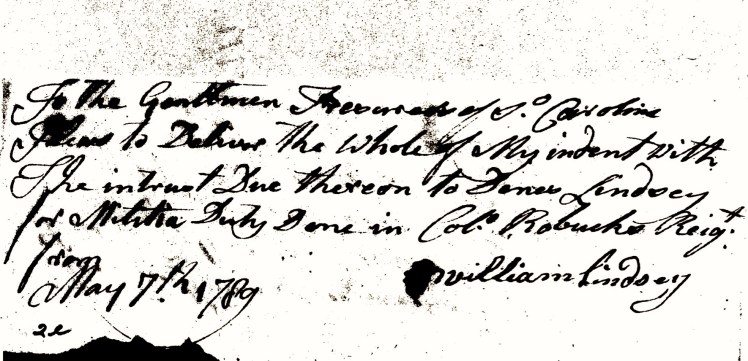 To the Gentlmen Tresurers of So. Caroline
Pleas to Deliver the Whole of My indent with
The intrust Due thereon to Lindsey
for Militia Duty Done in Colo. Robucks Reigt.
from
May 7th 1789 William Lindsey